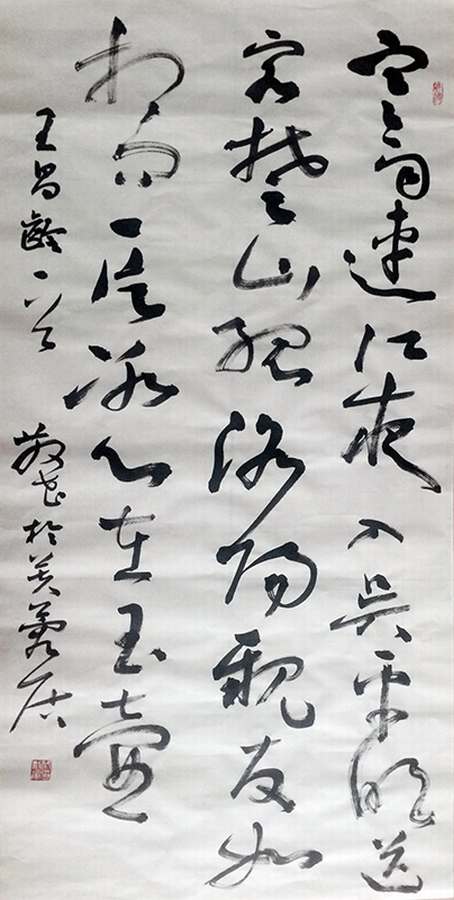 寒雨連江夜入吳平明送
客楚山孤洛陽親友如
相問一片冰心在玉壺
王昌齡一首
於居